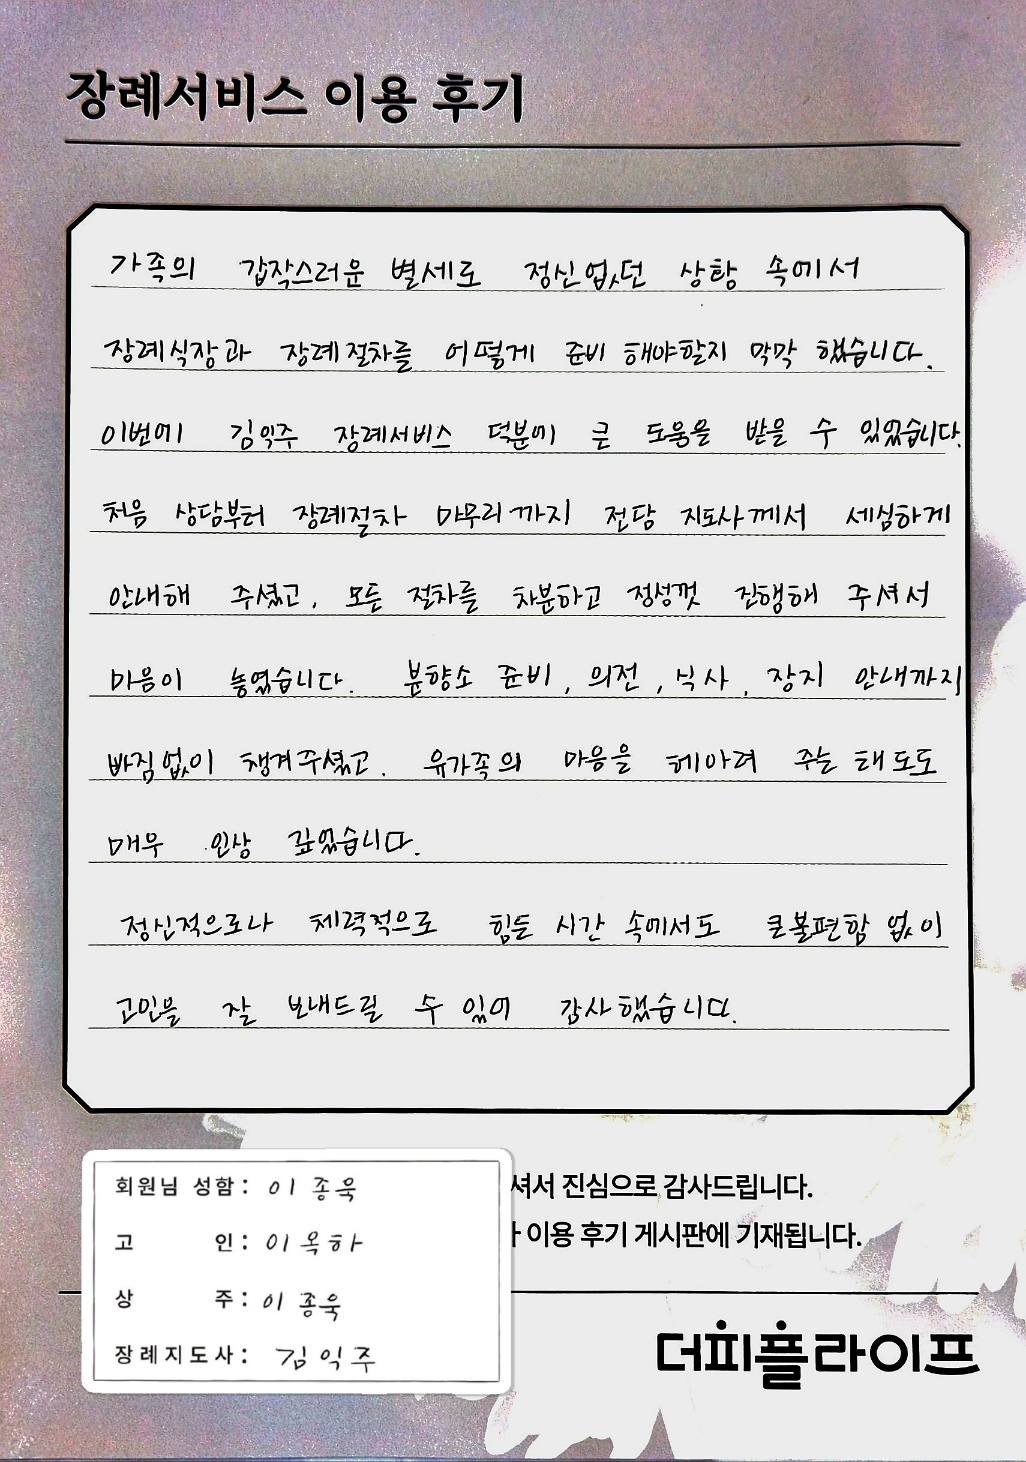 장례서비스 이용 후기
가족의 갑작스러운 별세로 정신없던 상황 속에서
장례식장과 장례절차를 어떻게 준비 해야할지 막막 했습니다.
이번에 김익주 장례서비스 덕분에 큰 도움을 받을 수 있었습니다.
처음 상담부터 장례절차 마무리까지 전담 지도사께서 세심하게
안내해 주셨고, 모든 절차를 차분하고 정성껏 진행해 주셔서
마음이 놓였습니다. 분향소 준비, 의전, 식사, 장지 안내까지
빠짐없이 챙겨주셨고, 유가족의 마음을 헤아려 주는 태도도
매우 인상 깊었습니다.
정신적으로나 체력적으로 힘든 시간 속에서도 큰불편함 없이
고인을 잘 보내드릴 수 있어 감사했습니다.
셔서 진심으로 감사드립니다.
이용 후기 게시판에 기재됩니다.
회원님 성함: 이종욱
고 인: 이옥하
상 주: 이종욱
장례지도사: 김익주
더피플라이프